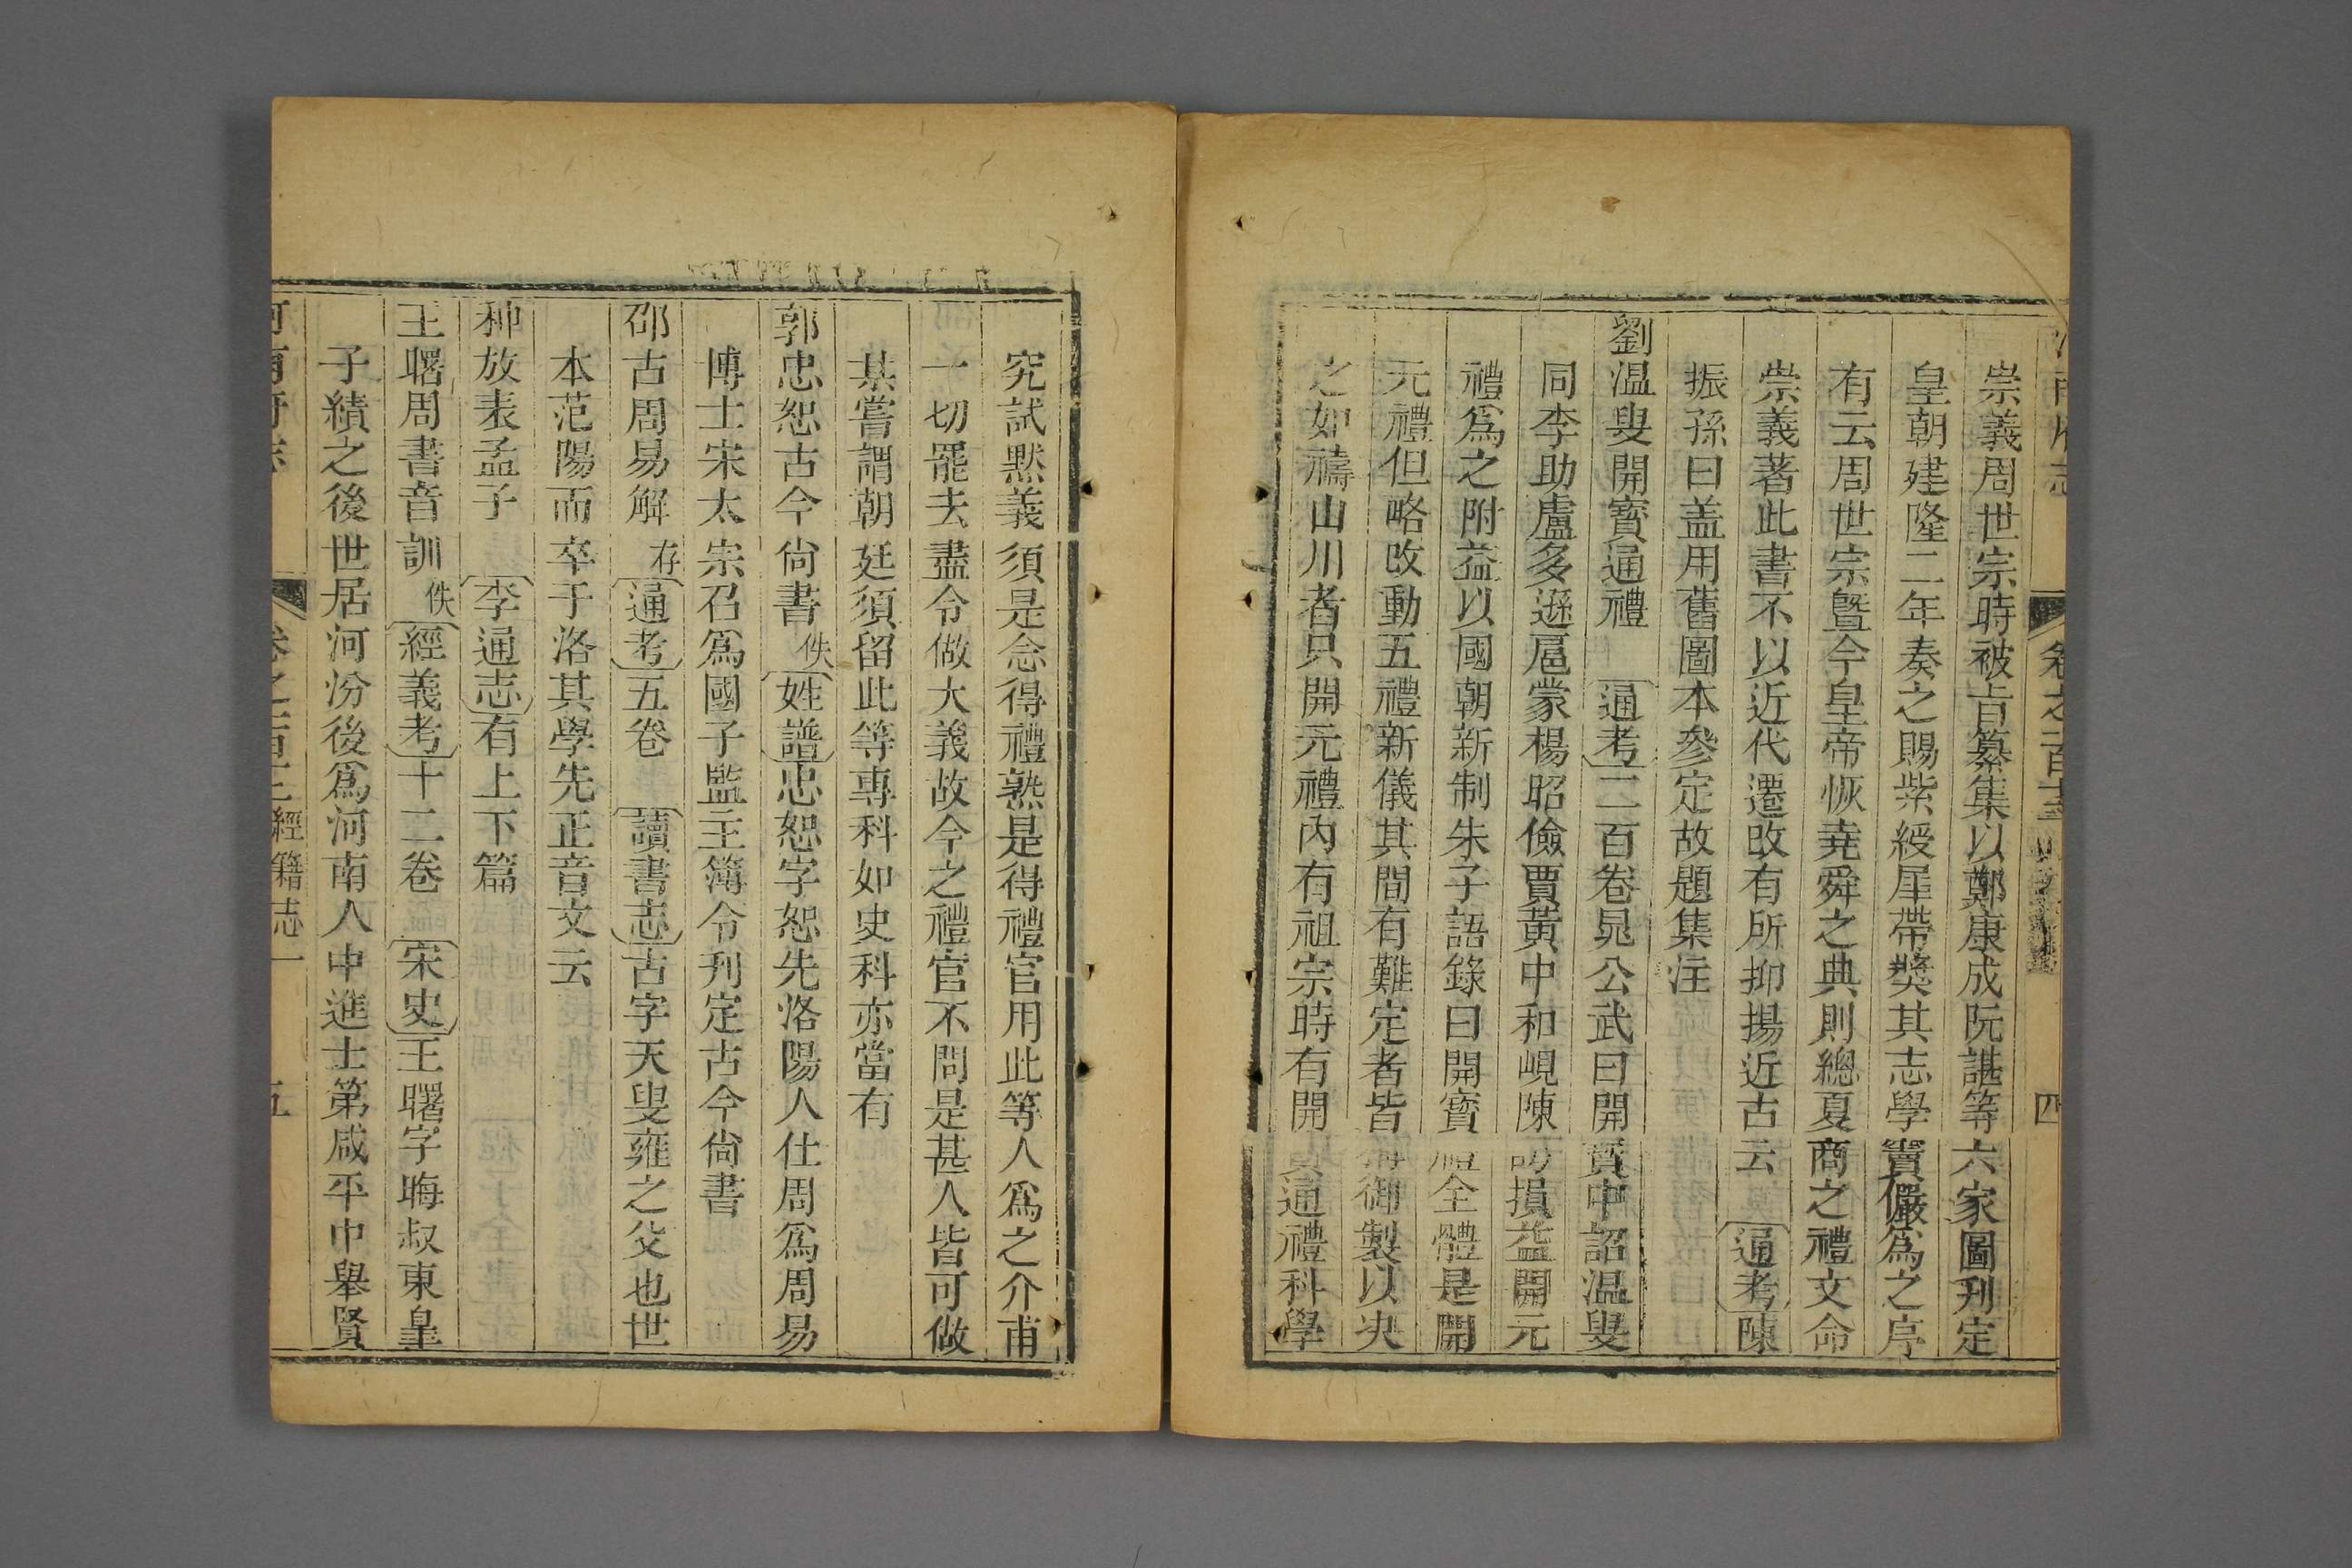 崇義周世宗時被旨纂集以鄭康成阮諶等六家圖刋定
皇朝建隆二年奏之賜紫綬犀帶奬其志學竇儼爲之序
有云周世宗曁今皇帝恢堯舜之典則總夏商之禮文命
崇義著此書不以近代遷改有所抑揚近古云通考陳
振孫曰盖用舊圖本參定故題集注
劉温叟開寳通禮通考二百卷晁公武曰開寳中詔温叟
同李助盧多遜扈蒙楊昭儉賈黃中和峴陳損益開元
禮爲之附益以國朝新制朱子語錄曰開寳禮全體是開
元禮但略改動五禮新儀其間有難定者皆御製以决
之如禱山川者只開元禮內有祖宗時有開通禮科學
究試默義須是念得禮熟是得禮官用此等人爲之介甫
一切罷去盡令做大義故今之禮官不問是甚人皆可做
某嘗謂朝廷須留此等專科如史科亦當有
郭忠恕古今尙書佚姓譜忠恕字恕先洛陽人仕周爲周易
博士宋太宗召爲國子監主簿令刋定古今尙書
邵古周易解存通考五卷讀書志古字天叟雍之父也世
本范陽而卒于洛其學先正音文云
种放表孟子李通志有上下篇
王曙周書音訓佚經義考十二卷宋史王曙字晦叔東皇
子績之後世居河汾後爲河南人中進士第咸平中舉賢
卷之百 經籍志一 五